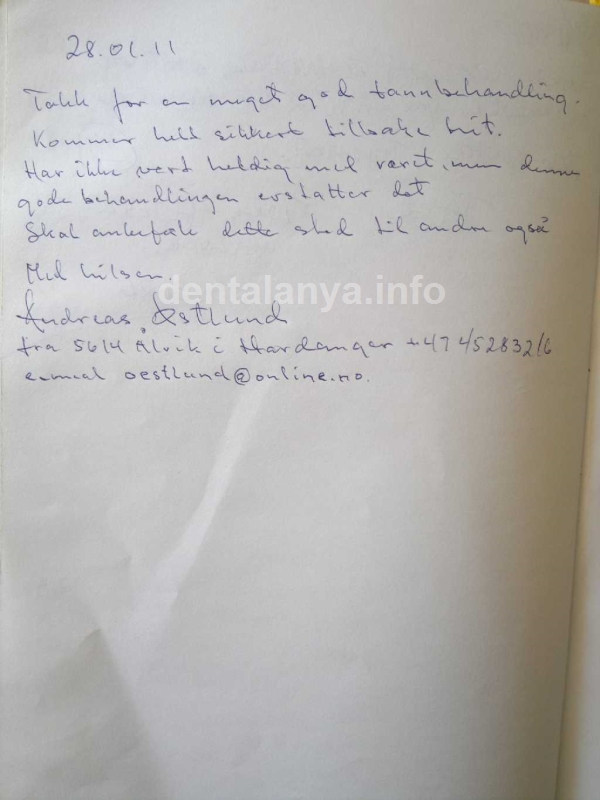 28.01.11
Takk for en meget god tannbehandling.
Kommer helt sikkert tilbake hit.
Har ikke vert heldig med været, men denne
gode behandlingen erstatter det
Skal anbefale dette sted til andre også
Med hilsen.
dentalanya.info
Andreas Østlund
fra 5614 Ålvik i Hardanger +47 45283216
e-mail oestlund@online.no.